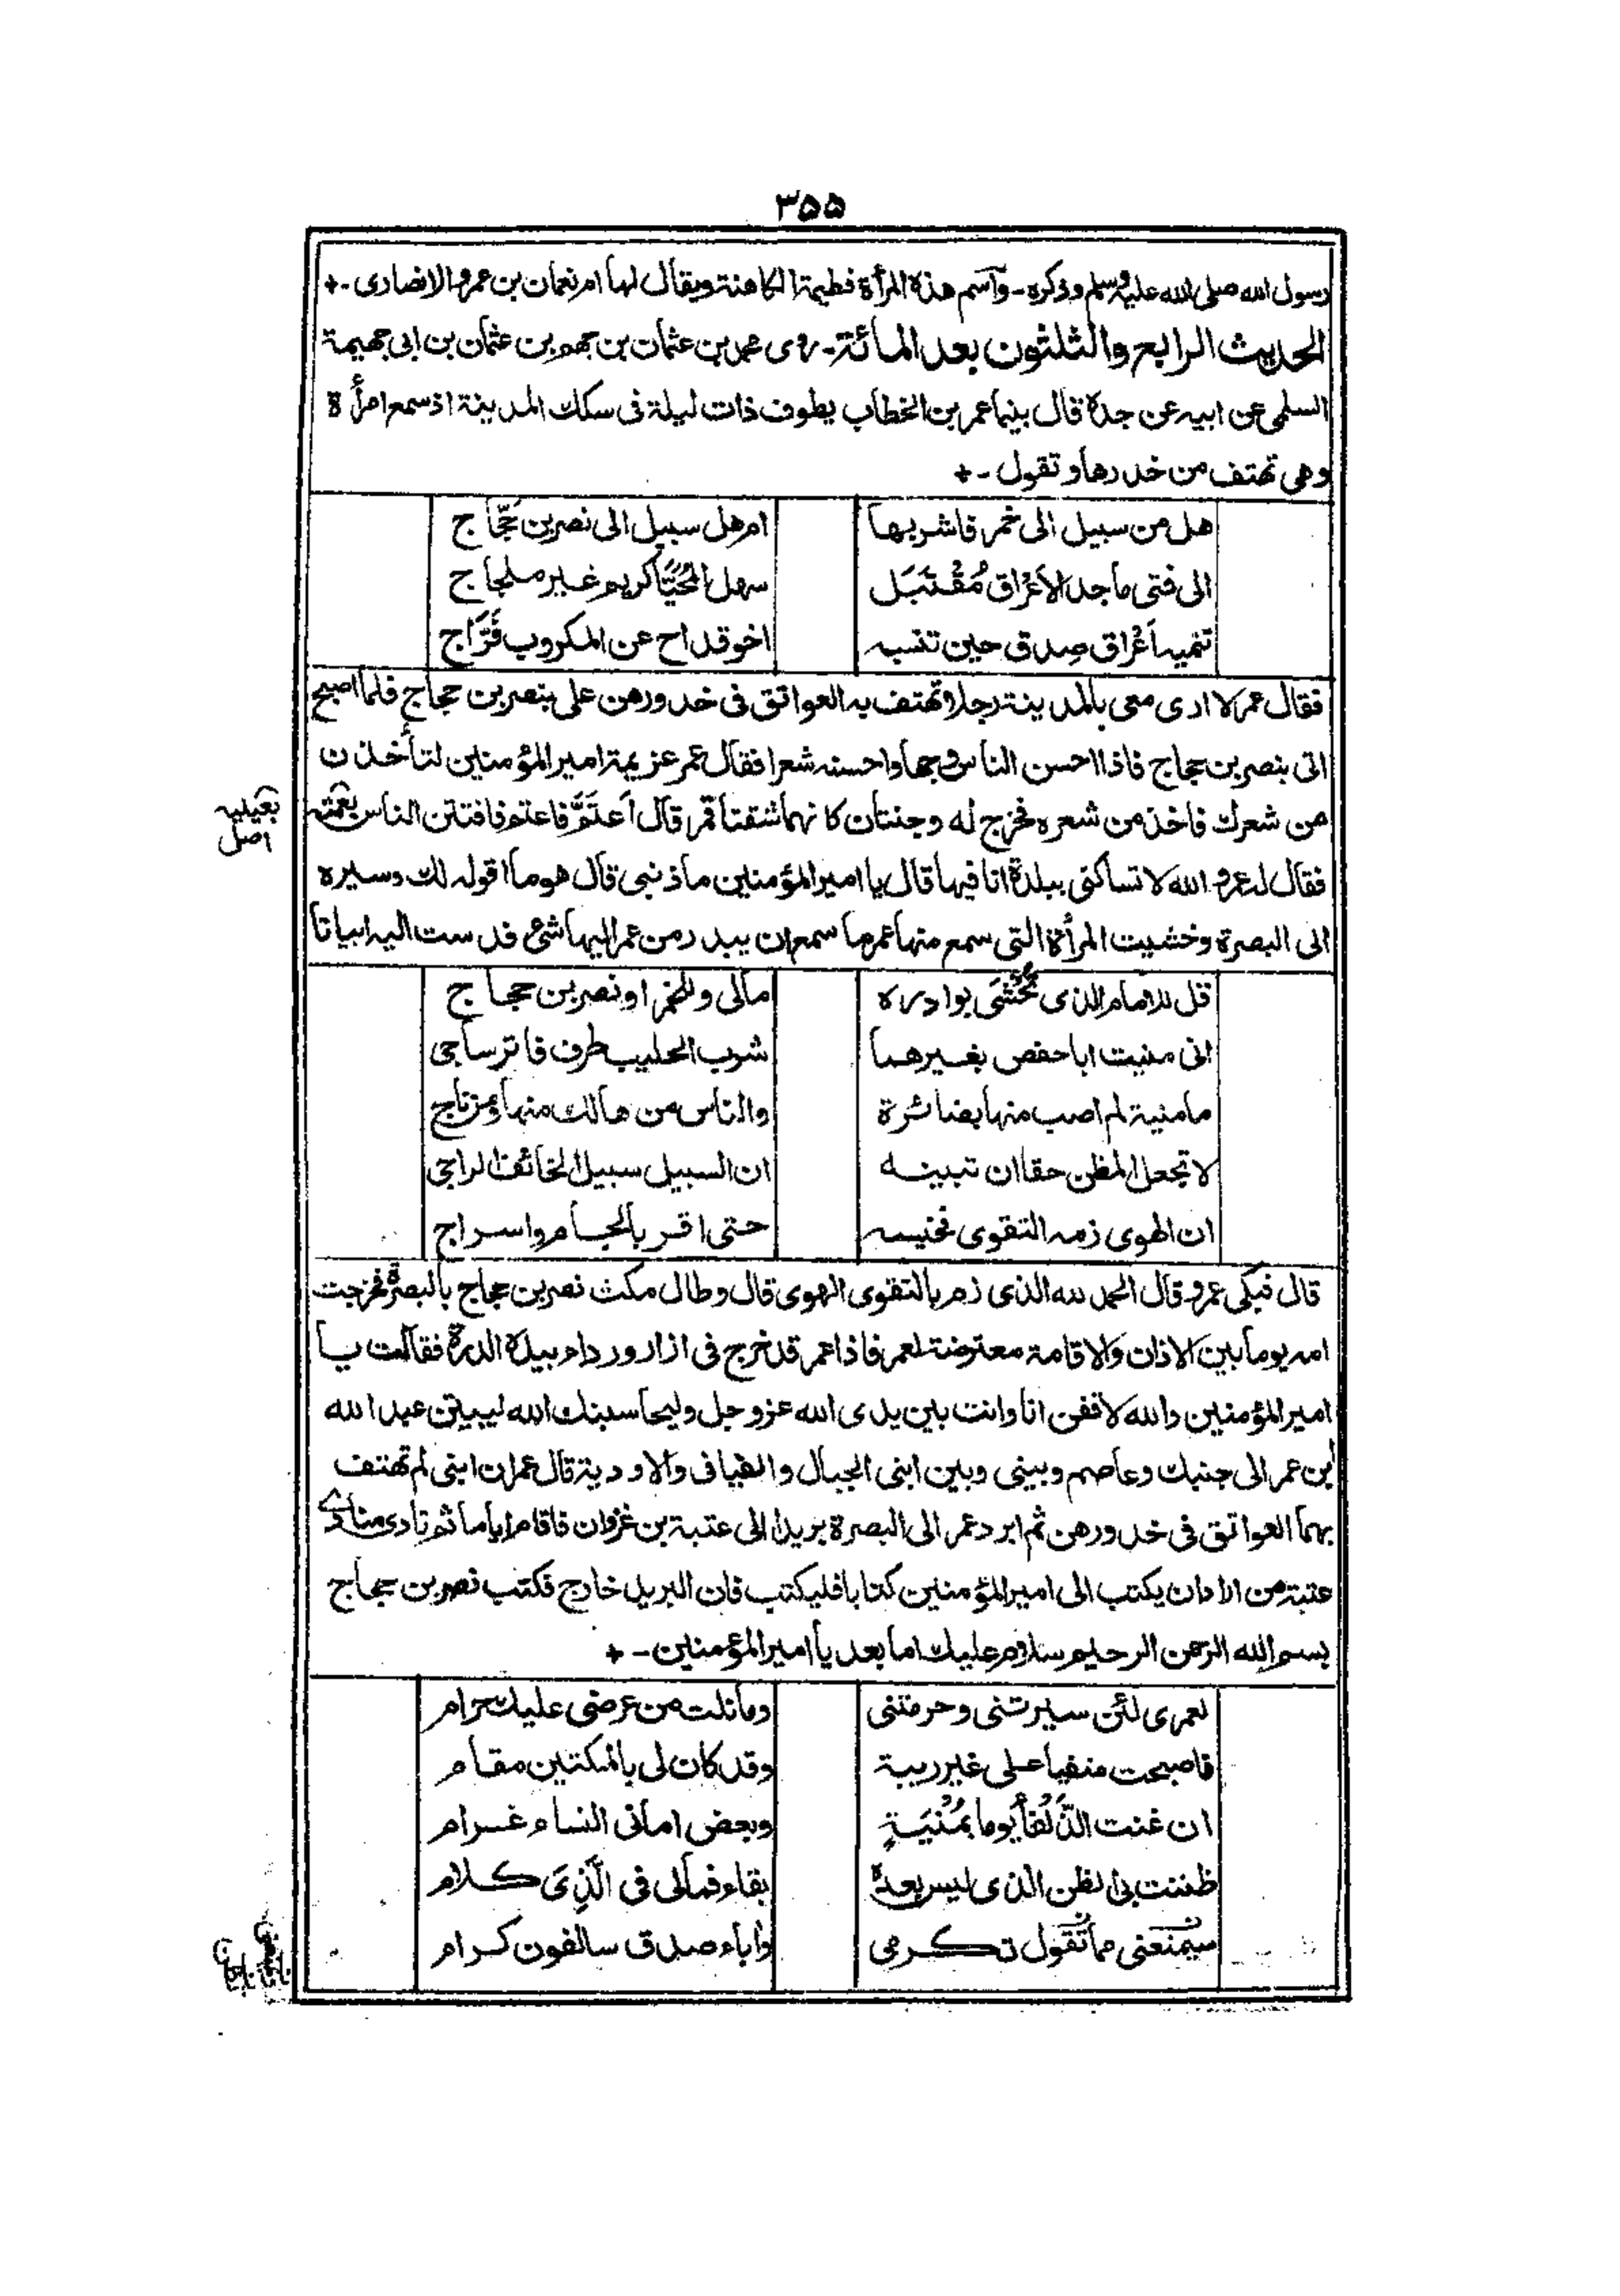 ٣٥٥
رسول الله صلى الله عليه وسلم وذكره - وآسم هذه المرأة فطيمة الكاهنة ويقال لها ام نعمان بن عمرو الانصارى -+
الحديث الرابع والثلثون بعد المائة - روى محمد بن عثمان بن جهم بن عثمان بن ابى جهيمة
السلمى عن ابيه عن جده قال بينما عمر بن الخطاب يطوف ذات ليلة فى سكك المدينة اذ سمع امرأة
وهى تهتف من خدرها و تقول -+
هل من سبيل الى خمر فاشربها ام هل سبيل الى نصر بن حَجّاج
الى فتى ماجد الاَعْرَاق مُقْتَبَل سهل المُحَيَّا كريم غير ملجاج
تنميه اَعْرَاق صِدق حين تنسبه اخو قداح عن المكروب فَرَّاج
فقال عمر لا ادى معى بالمدينة رجلا تهتف به العواتق فى خدورهن على بنصر بن حجاج فلما اصبح
اتى بنصر بن حجاج فاذا احسن الناس وجها واحسنه شعرا فقال عمر عزيمة امير المؤمنين لتأخذن
من شعرك فاخذ من شعره فخرج له وجنتان كانهما شقتا قمر قال اَعتَمَّ فاعتم فافتتن الناس بعمته
بعينيه
اصل
فقال له عمر و الله لا تساكنى ببلدة انا فيها قال يا امير المؤمنين ما ذنبى قال هو ما اقوله لك وسيره
الى البصرة وخشيت المرأة التى سمع منها عمر ما سمع ان يبدر من عمر اليها شئ فدست اليه ابياتا
قل للامام الذى تُخْشَى بوادره مالى وللخمر او نصر بن حجاج
انى منيت ابا حفص بغيرهما شرب الحليب طرف فاتر ساجى
ما منية لم اصب منها بضائرة والناس من هالك منها ومن ناج
لا تجعل الظن حقا ان تبينه ان السبيل سبيل الخائف الراجى
ان الهوى زمه التقوى فخيسه حتى اقر بالجام واسراج
قال فبكى عمر وقال الحمد لله الذى زم بالتقوى الهوى قال وطال مكث نصر بن حجاج بالبصرة فخرجت
امه يوما بين الاذان والاقامة معترضة لعمر فاذا عمر قد خرج فى ازار ورداء بيده الدرة فقالت يا
امير المؤمنين والله لاقفن انا وانت بين يدى الله عزوجل وليحاسبنك الله ليبيتن عبد الله
ابن عمر الى جنبك وعاصم وبينى وبين ابنى الجبال والفيافى والاودية قال عمر ان ابنى لم تهتف
بهما العواتق فى خدورهن ثم ابرد عمر الى البصرة بريدا الى عتبة بن غزوان فاقام اياما ثم نادى منادى
عتبة من اراد ان يكتب الى امير المؤمنين كتابا فليكتب فان البريد خارج فكتب نصر بن حجاج
بسم الله الرحمن الرحيم سلام عليك اما بعد يا امير المؤمنين -+
لعمرى لئن سيرتنى وحرمتنى ومانلت من عرضى عليك حرام
فاصبحت منفيا على غير ريبة وقد كان لى بالمكتين مقام
ان غنت الذَّلْفَا يوما بمُنْيَةٍ وبعض امانى النساء غرام
ظننت بى الظن الذى ليس بعده بقاء فمالى فى الَّذِىَ كلام
سيمنعنى مما تقول تكرمى واٰباء صدق سالفون كرام